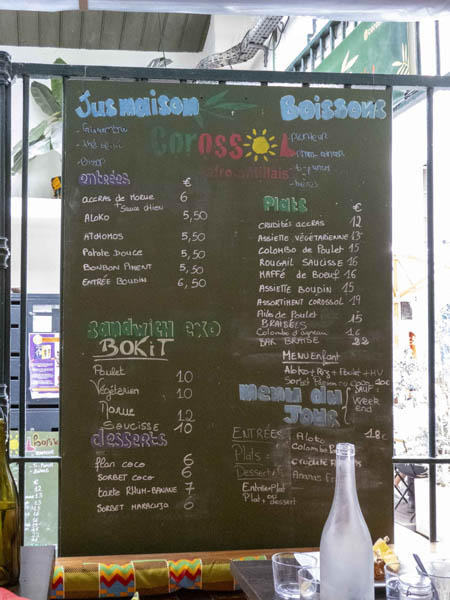 Jus maison
Boissons
- Gingembre
- Bissap
COROSSOL
afro antillais
entrées €
ACCRAS DE MORUE 6
Sauce chien
ALOKO 5,50
ATCHOMOS 5,50
Patate Douce 5,50
BONBON PIMENT 5,50
ENTRÉE BOUDIN 6,50
Plats €
CRUDITÉS ACCRAS 12
ASSIETTE VÉGÉTARIENNE 13
COLOMBO DE POULET 15
ROUGAIL SAUCISSE 16
MAFFÉ DE BOEUF 16
ASSIETTE BOUDIN 15
ASSORTIMENT COROSSOL 19
Ailes de Poulet 15
BRAISÉES
Colombo d'agneau 16
BAR BRAISÉ 22
MENU Enfant
Aloko + Riz + Poulet + HV
Sorbet Passion ou coco 10€
Sandwich exo
BOKIT
Poulet 10
Végétarien 10
Morue 12
SAUCISSE 10
desserts
flan coco 6
SORBET COCO 6
tarte RHUM-BANANE 7
SORBET MARACUJA 0
Menu du Jour
SAUF
Week
end
ENTRÉES: Aloko 18€
Plats: Colombo
Desserts:
Ananas
Entrée + Plat
ou
Plat + dessert